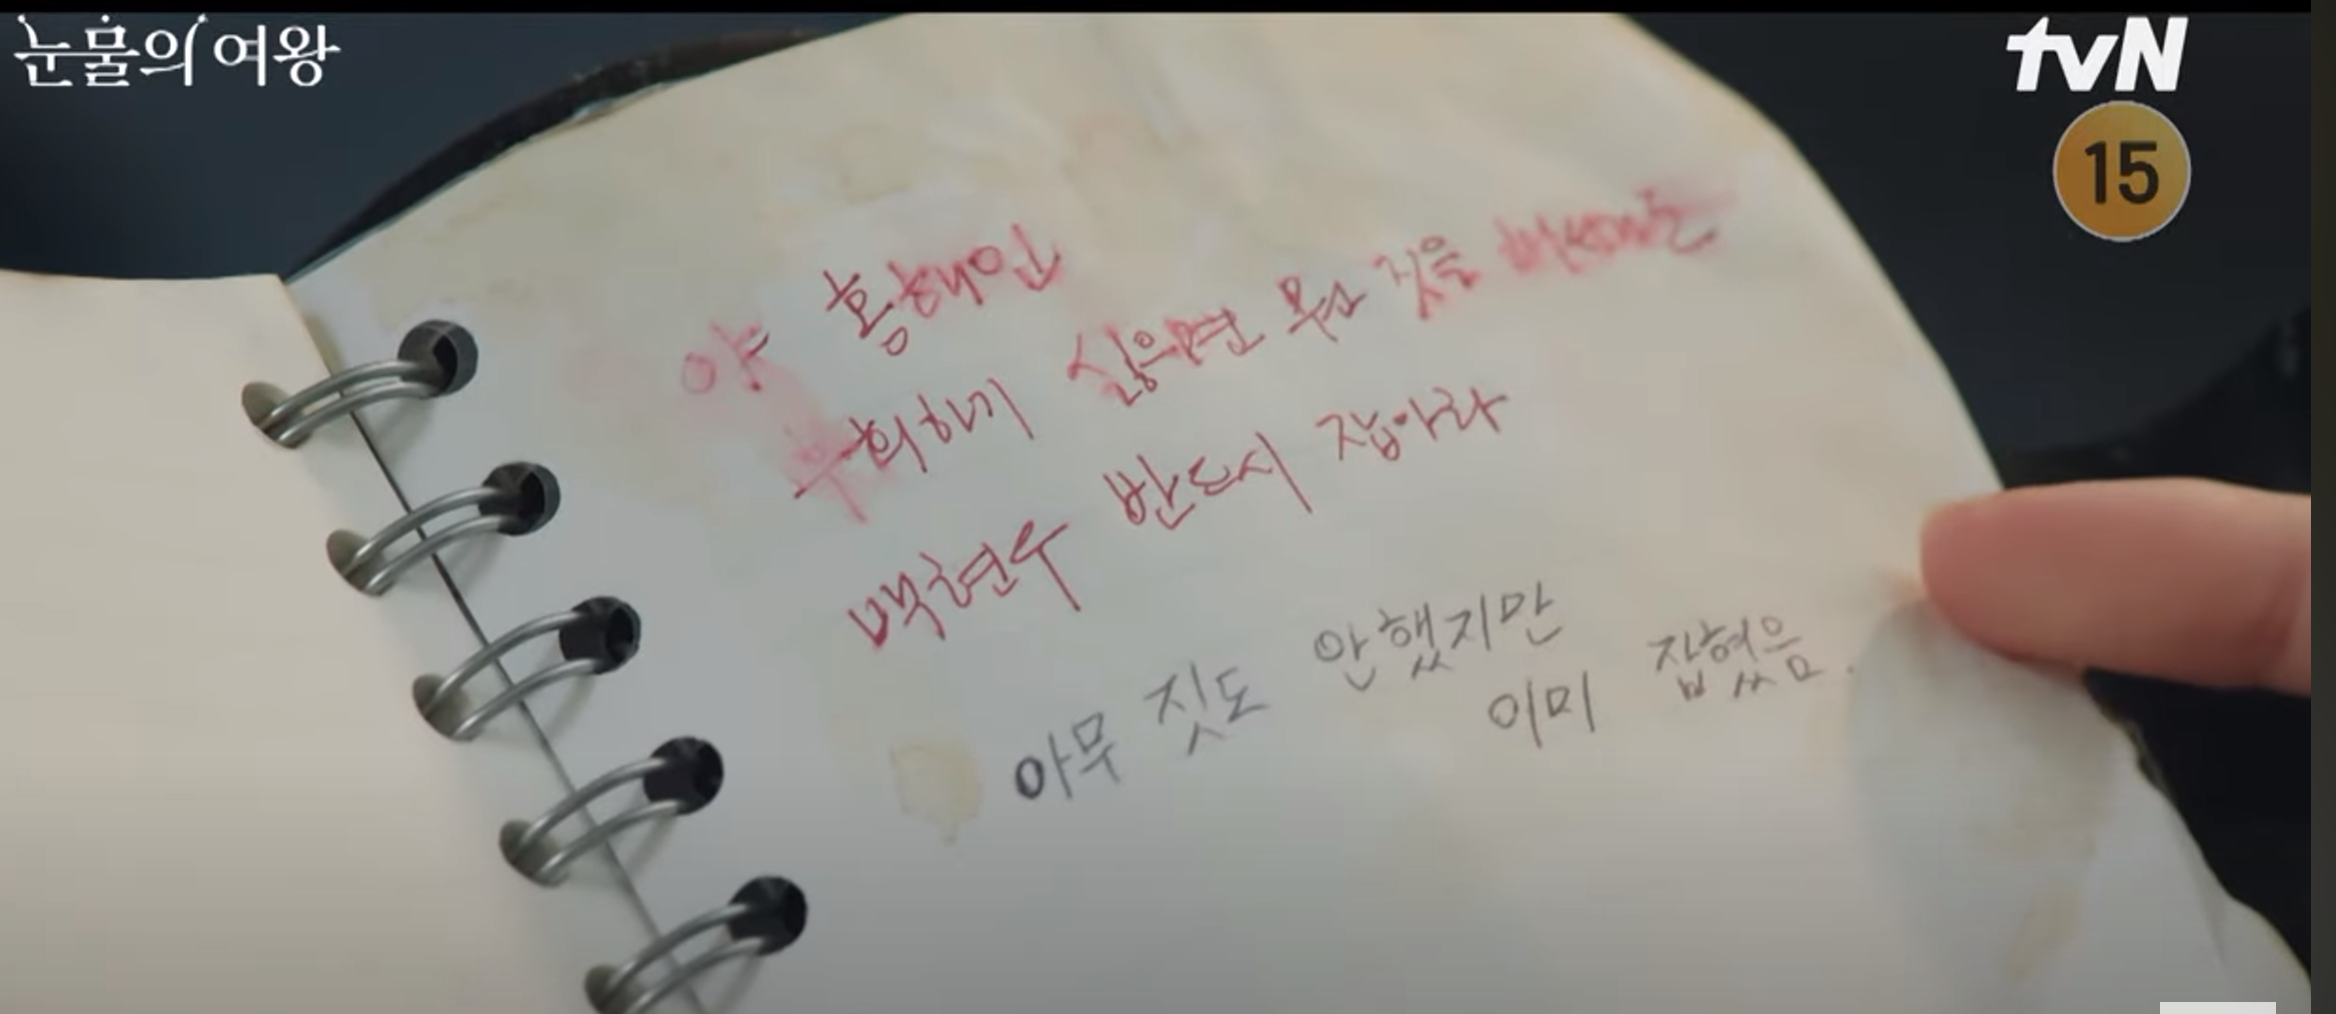 눈물의 여왕
tvN
15
야 홍해인
후회하기 싫으면 무슨 짓을 해서라도
백현우 반드시 잡아라
아무 짓도 안했지만
이미 잡혔음.